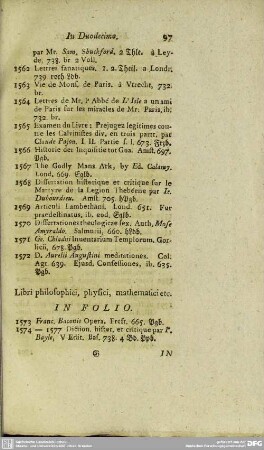 In Duodecimo. 97
par Mr. Sam. Shuckford. 2 Thle. à Ley-
de. 738. br. 2 Voll.
1562 Lettres fanatiques. 1. 2. Theil. a Londr.
739. roth Ldb.
1563 Vie de Mons. de Paris. à Utrecht, 732.
br.
1564 Lettres de Mr. l' Abbé de L' Isle a un ami
de Paris sur les miracles de Mr. Paris, ib.
732. br.
1565 Examen du Livre: Prejugez legitimes con-
tre les Calvinistes div. en trois parit. par
Claude Pajon. I. II. Partie s. l. 673.
1566 Histoire der Inquisitie tot Goa. Amst. 697.
Pgb.
1567 The Godly Mans Ark, by Ed. Calamy.
Lond. 669.
1568 Dissertation historique et critique sur le
Martyre de la Legion Thebéene par Jr.
Dubourdieu. Amst. 705.
1569 Articuli Lambethani. Lond. 651. Fur
prædestinatus, ib. eod.
1570 Dissertationes theologicæ sex. Auth, Mose
Amyraldo. Salmurii, 660.
1571 Gr. Chiodini Inventarium Templorum. Gor-
licii, 678. Pgb.
1572 D. Aurelii Augustini meditationes. Col.
Agr. 639. Ejusd. Confessiones, ib. 635.
Pgb.
Libri philosophici, physici, mathematici etc.
IN FOLIO.
1573 Franc. Baconis Opera. Frcft. 665. Pgb.
1574 — 1577 Diction. histor. et critique par P.
Bayle, V Edit. Bas. 738. 4 Bd. Ppb.
G IN